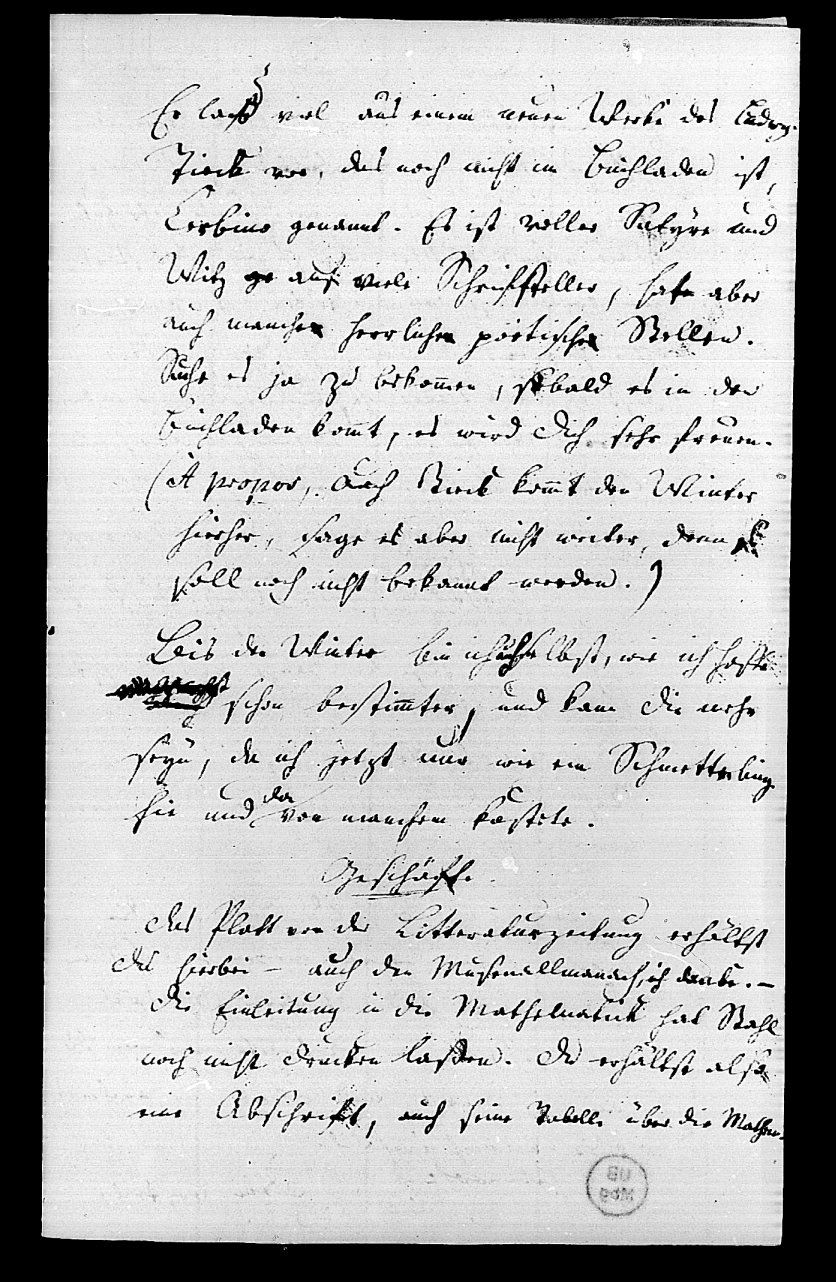 Er lass viel aus einem neuen Werke des Ludwig
Tieck vor, das noch nicht im Buchladen ist,
Zerbino genannt. Es ist voller Satyre und
Witz auf viele Schriftsteller, hat aber
auch manche herrliche poetische Stellen.
Suche es ja zu bekom̄en, sobald es in den
Buchladen kom̄t, es wird dich sehr freuen.
(A propos, auch Tieck kom̄t den Winter
hierher, sage es aber nicht weiter, denn es
soll noch nicht bekannt werden.)
Bis den Winter bin ich auch selbst, wie ich hoffe
schon bestim̄ter, und kann dir mehr
seyn, da ich jetzt nur wie ein Schmetterling
hie und da von manchem kostete.
Geschäfte.
Das Blatt von der Litteraturzeitung erhältst
du hierbei – auch den Musenallmanach, ich danke. –
Die Einleitung in die Mathematik hat Stahl
noch nicht drucken lassen. Du erhältst also
eine Abschrift, auch seine Tabelle über die Mathem-
UB
Mbg